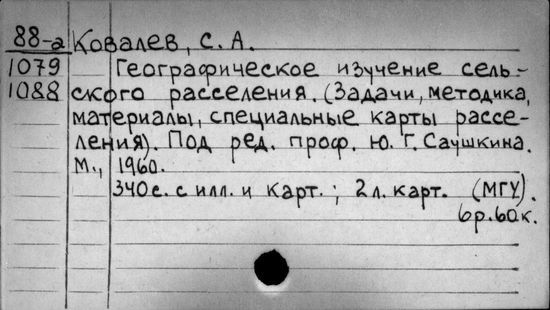 88-а Ковалев, С. А.
1079 Географическое изучение сель-
1088 ского расселения. (Задачи, методика,
материалы, специальные карты рассе-
ления). Под ред. проф. Ю. Г. Саушкина.
М., 1960.
340с. с илл. и карт.; 2 л. карт. (МГУ).
6р.60к.